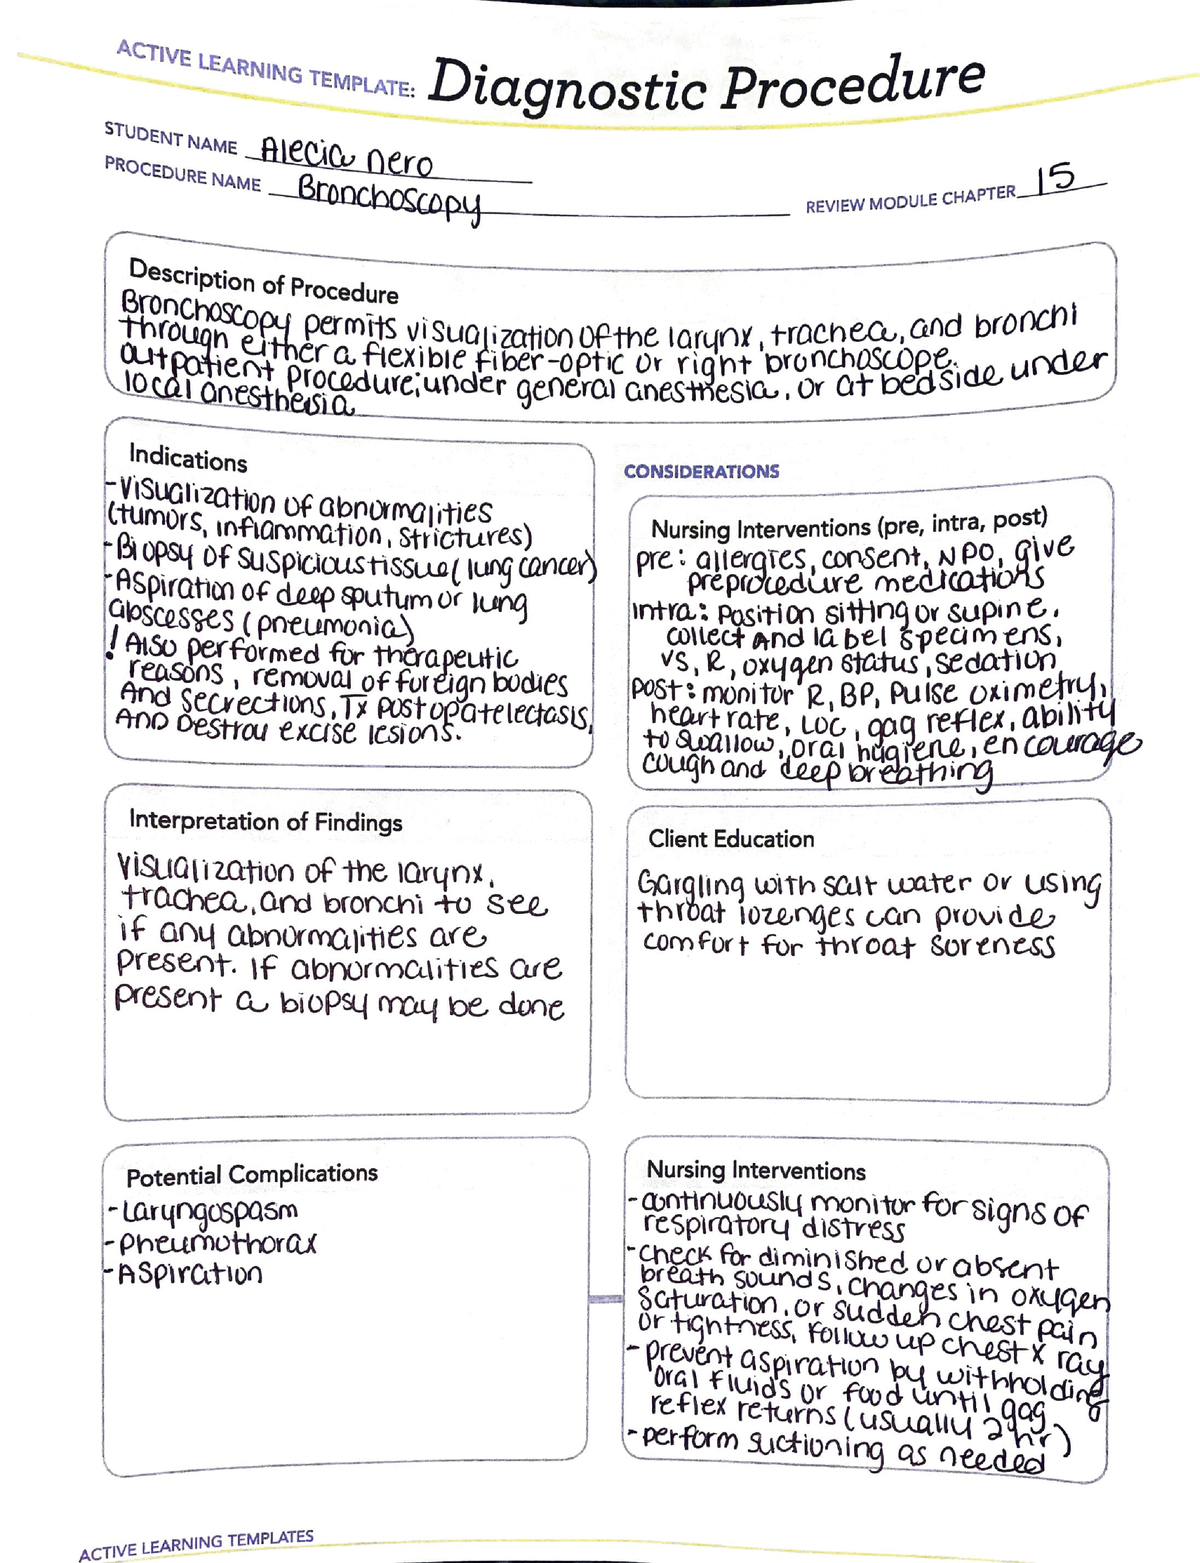 ACTIVE LEARNING TEMPLATE: Diagnostic Procedure
STUDENT NAME Alecia nero
PROCEDURE NAME Bronchoscopy
REVIEW MODULE CHAPTER 15
Description of Procedure
Bronchoscopy permits visualization of the larynx, trachea, and bronchi
through either a flexible fiber-optic or right bronchoscope.
outpatient procedure; under general anesthesia, or at bedside under
local anesthesia
Indications
-Visualization of abnormalities
(tumors, inflammation, strictures)
-Biopsy of suspicious tissue (lung cancer)
-Aspiration of deep sputum or lung
abscesses (pneumonia)
! Also performed for therapeutic
reasons, removal of foreign bodies
And secrections, Tx post op atelectasis,
AND Destroy excise lesions.
CONSIDERATIONS
Nursing Interventions (pre, intra, post)
pre: allergies, consent, NPO, give
preprocedure medications
intra: position sitting or supine,
collect and label specimens,
VS, R, oxygen status, sedation
post: monitor R, BP, Pulse oximetry,
heart rate, LOC, gag reflex, ability
to swallow, oral hygiene, encourage
cough and deep breathing
Interpretation of Findings
Visualization of the larynx,
trachea, and bronchi to see
if any abnormalities are
present. If abnormalities are
present a biopsy may be done
Client Education
Gargling with salt water or using
throat lozenges can provide
comfort for throat soreness
Potential Complications
-Laryngospasm
-Pneumothorax
-Aspiration
Nursing Interventions
-continuously monitor for signs of
respiratory distress
-check for diminished or absent
breath sounds, changes in oxygen
saturation, or sudden chest pain
or tightness, follow up chest x ray
-prevent aspiration by withholding
oral fluids or food until gag
reflex returns (usually 2 hr)
-perform suctioning as needed
ACTIVE LEARNING TEMPLATES